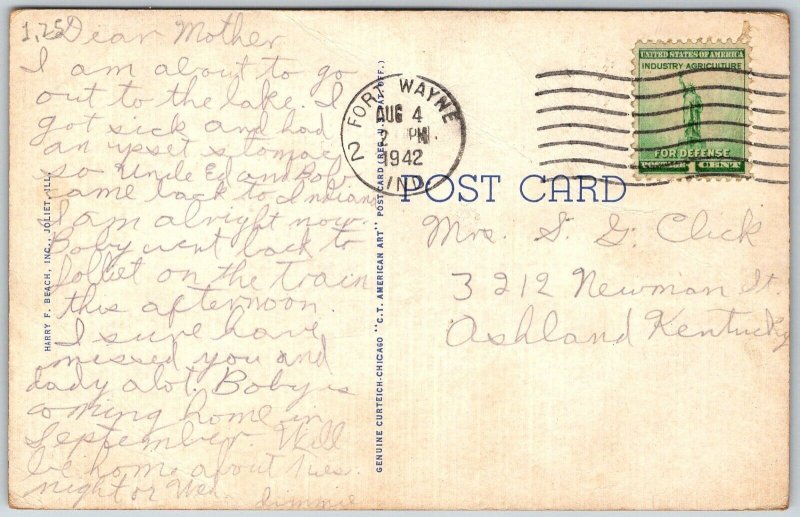 1.25
Dear Mother
I am about to go
out to the lake. I
got sick and had
an upset stomac
so Uncle Ed an Bob
came back to Indiana
I am alright now.
Boby went back to
Jolliet on the train
this afternoon.
I sure have
missed you and
dady alot. Boby is
coming home in
September. Will
be home about Tues.
night or Wed.
Jimmie
HARRY F. BEACH, INC., JOLIET, ILL.
GENUINE CURTEICH-CHICAGO "C.T. AMERICAN ART" POST CARD (REG. U.S. PAT. OFF.)
FORT WAYNE
AUG 4
PM
1942
IND.
2
UNITED STATES OF AMERICA
INDUSTRY AGRICULTURE
FOR DEFENSE
1 CENT
POST CARD
Mrs. S. G. Click
3212 Newman St.
Ashland Kentucky